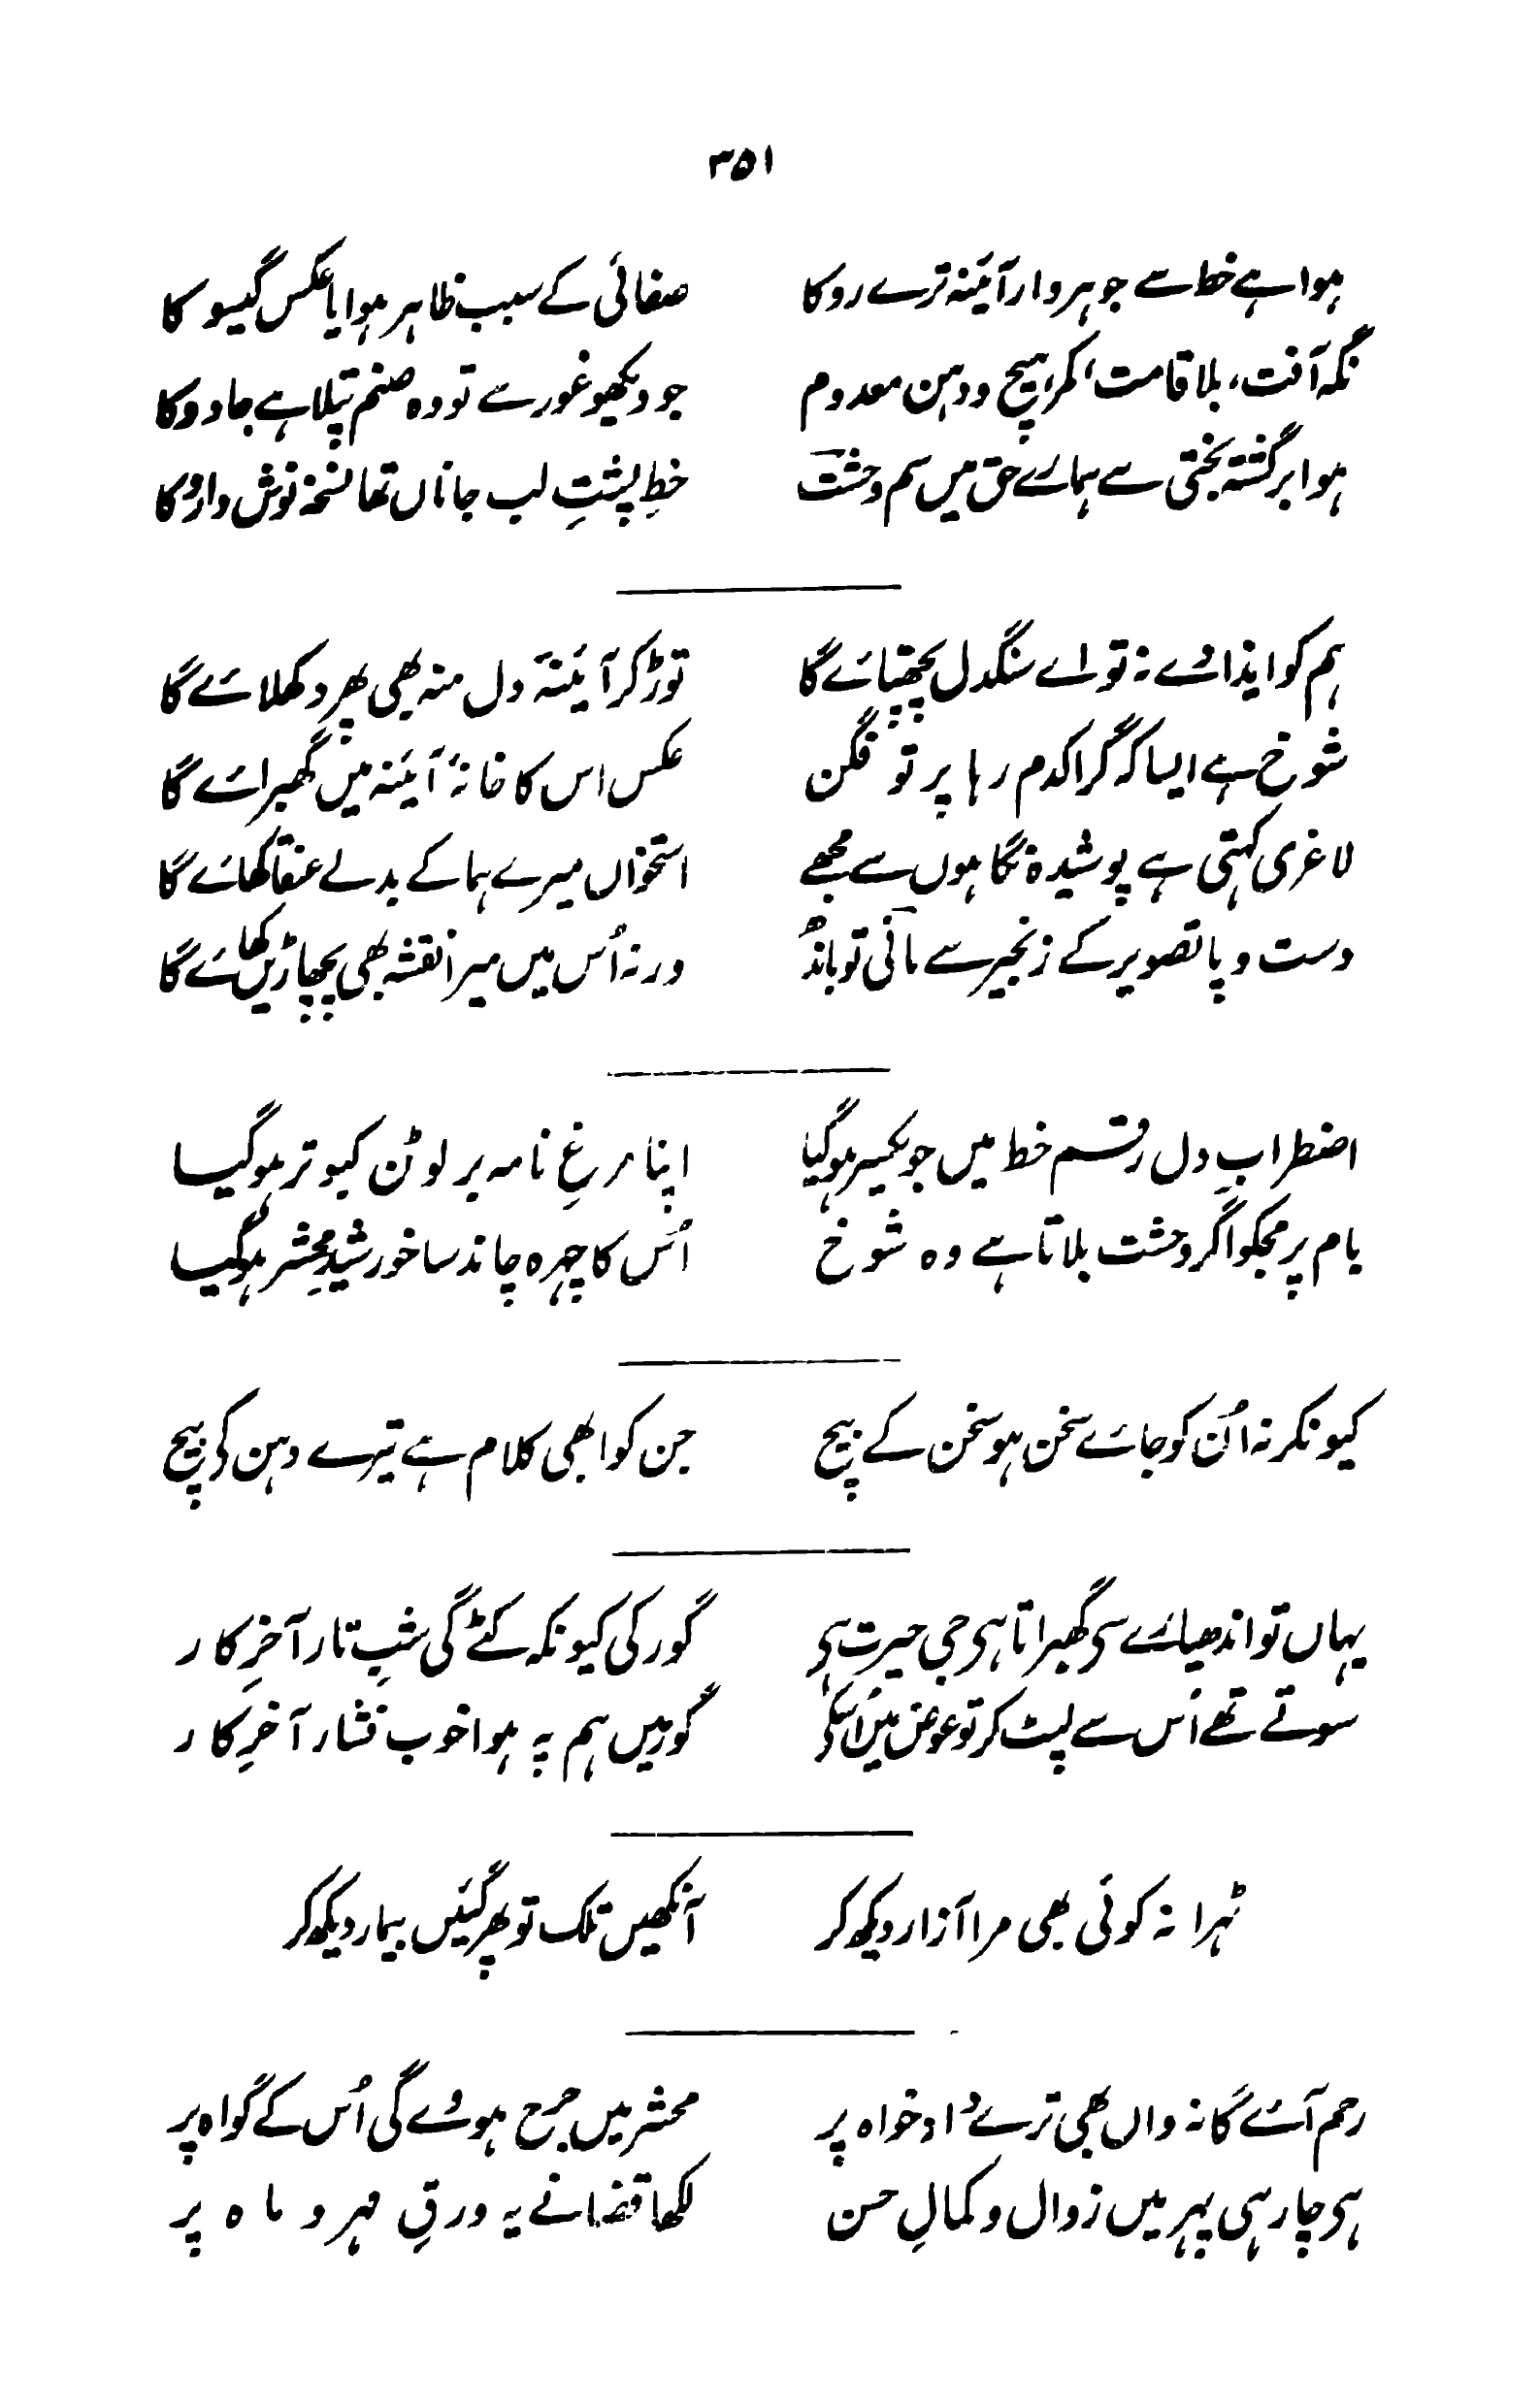 ۳۵۱
ہوا ہے خط سے جوہر وار آئینہ ترے رو کا صفائی کے سبب ظاہر ہوا یا عکس گیسو کا
نگہ آفت، بلا قامت، کمر ہیچ و دہن معدوم جو دیکھو غور سے تو وہ صنم پتلا ہے جادو کا
ہوا برگشتہ بختی سے ہمارے حق میں سم وحشت خطِ پشتِ لب جاناں تھا نسخہ نوش دارو کا
ہم کو ایذا دے نہ تو اے سنگدل پچھتائے گا توڑ کر آئینۂ دل منہ بھی پھر دکھلائے گا
شوخ ہے ایسا کہ گر اکدم رہا پرتو فگن عکس اس کا خانۂ آئینہ میں گھبرائے گا
لاغری کہتی ہے پوشیدہ نگاہوں سے مجھے استخواں میرے ہما کے بدلے عنقا کھائے گا
دست و پا تصویر کے زنجیر سے مانی تو باندھ ورنہ اُس میں میرا نقشہ بھی پچھاڑیں کھائے گا
اضطرابِ دل رقم خط میں جو یکسر ہو گیا اپنا مرغِ نامہ بر لوٹن کبوتر ہو گیا
بام پر مجکو اگر وحشت بلاتا ہے وہ شوخ اُس کا چہرہ چاند سا خورشیدِ محشر ہو گیا
کیونکر نہ اُن کو جائے سخن ہو سخن کے بیچ جن کو ابھی کلام ہے تیرے دہن کی بیچ
یہاں تو اندھیارے سی گھبراتا ہی جی حیرت ہی گور کی کیونکہ کٹے گی شبِ تار آخرِ کار
سوتے تھے اُس سے لپٹ کر تو عوض میں اُسکی گور میں ہم پہ ہوا خوب فشار آخرِ کار
ٹہرا نہ کوئی بھی مرا آزار دیکھ کر آنکھیں تلک تو پھر گئیں بیمار دیکھ کر
رحم آئے گا نہ واں بھی ترے داد خواہ پر محشر میں جرح ہووے گی اُس کے گواہ پر
ہی چار ہی پہر میں زوال و کمالِ حسن لکھا قضا نے یہ ورقِ مہر و ماہ پر